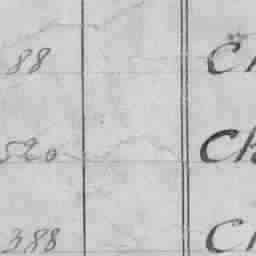 88 Ch
520 Ch
388 Ch